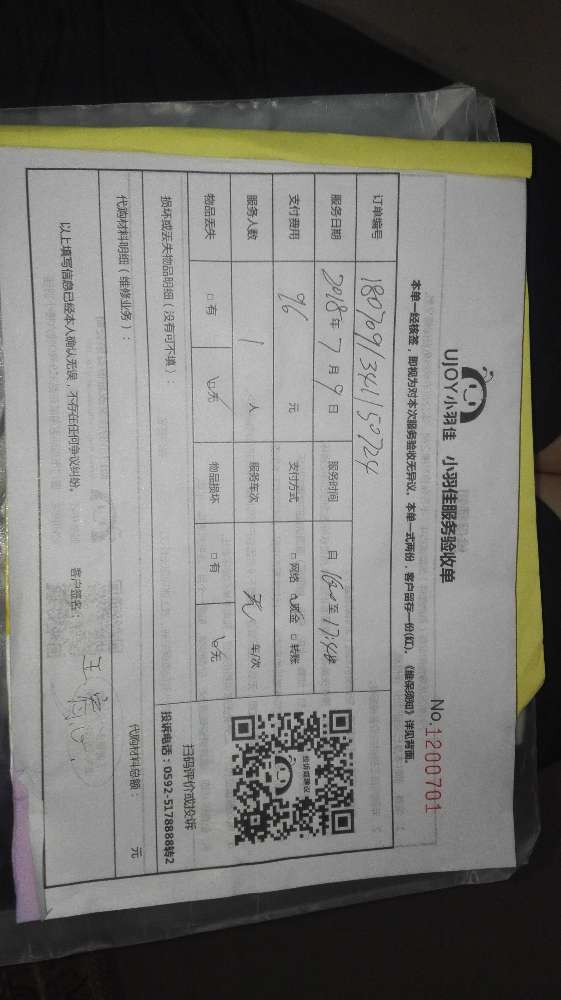 UJOY小羽佳 小羽佳服务验收单
No.1200701
本单一经核签，即视为对本次服务验收无异议。本单一式两份，客户留存一份(红)。《维保须知》详见背面。
订单编号 1807091341150724
服务日期 2018年7月9日 服务时间 自 至17:48
支付费用 96 元 支付方式 □网络 ☑现金 □转账
服务人数 1 人 服务车次 无 车/次
物品丢失 □有 ☑无 物品损坏 □有 ☑无
投诉或建议
扫码评价或投诉
投诉电话：0592-5178888转2
损坏或丢失物品明细（没有可不填）：
代购材料明细（维修业务）： 代购材料总额： 元
以上填写信息已经本人确认无误，不存在任何争议纠纷。 客户签名：